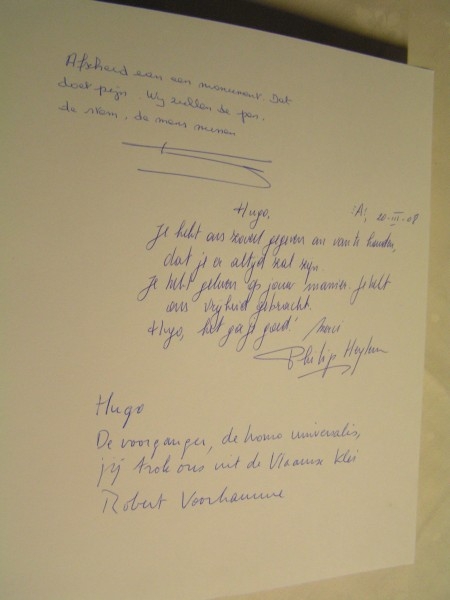 Afscheid van een monument. Dat
doet pijn. Wij zullen de pen,
de stem, de mens missen
Hugo,
'A', 20-III-08
Je hebt ons zoveel gegeven om van te houden,
dat je er altijd zal zijn.
Je hebt geleven op jouw manier. Je hebt
ons vrijheid gebracht.
Hugo, het ga je goed! Merci
Philip Heylen
Hugo
De voorganger, de homo universalis,
jij trok ons uit de Vlaamse klei
Robert Voorhamme